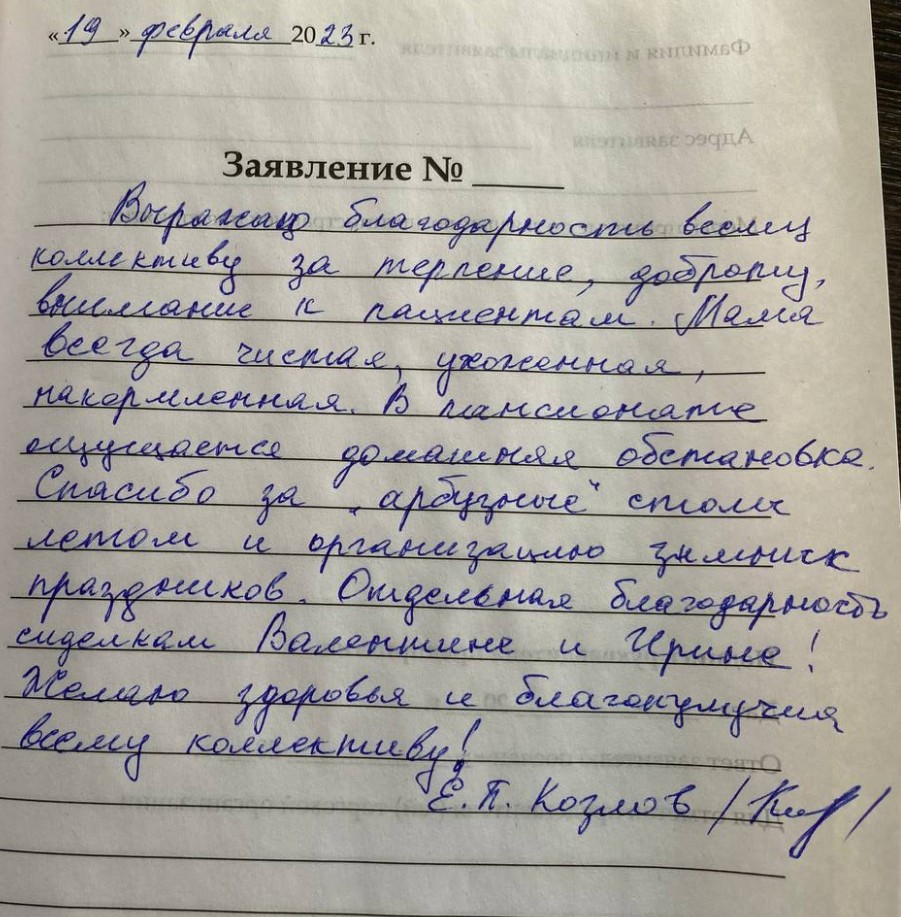 «19» февраля 2023 г.
Фамилия и инициалы заявителя
Адрес заявителя
Заявление № ____
Выражаю благодарность всему
коллективу за терпение, доброту,
внимание к пациентам. Мама
всегда чистая, ухоженная,
накормленная. В пансионате
ощущается домашняя обстановка.
Спасибо за „арбузные“ столы
летом и организацию зимних
праздников. Отдельная благодарность
сиделкам Валентине и Ирине!
Желаю здоровья и благополучия
всему коллективу!
Е.П. Козлов /